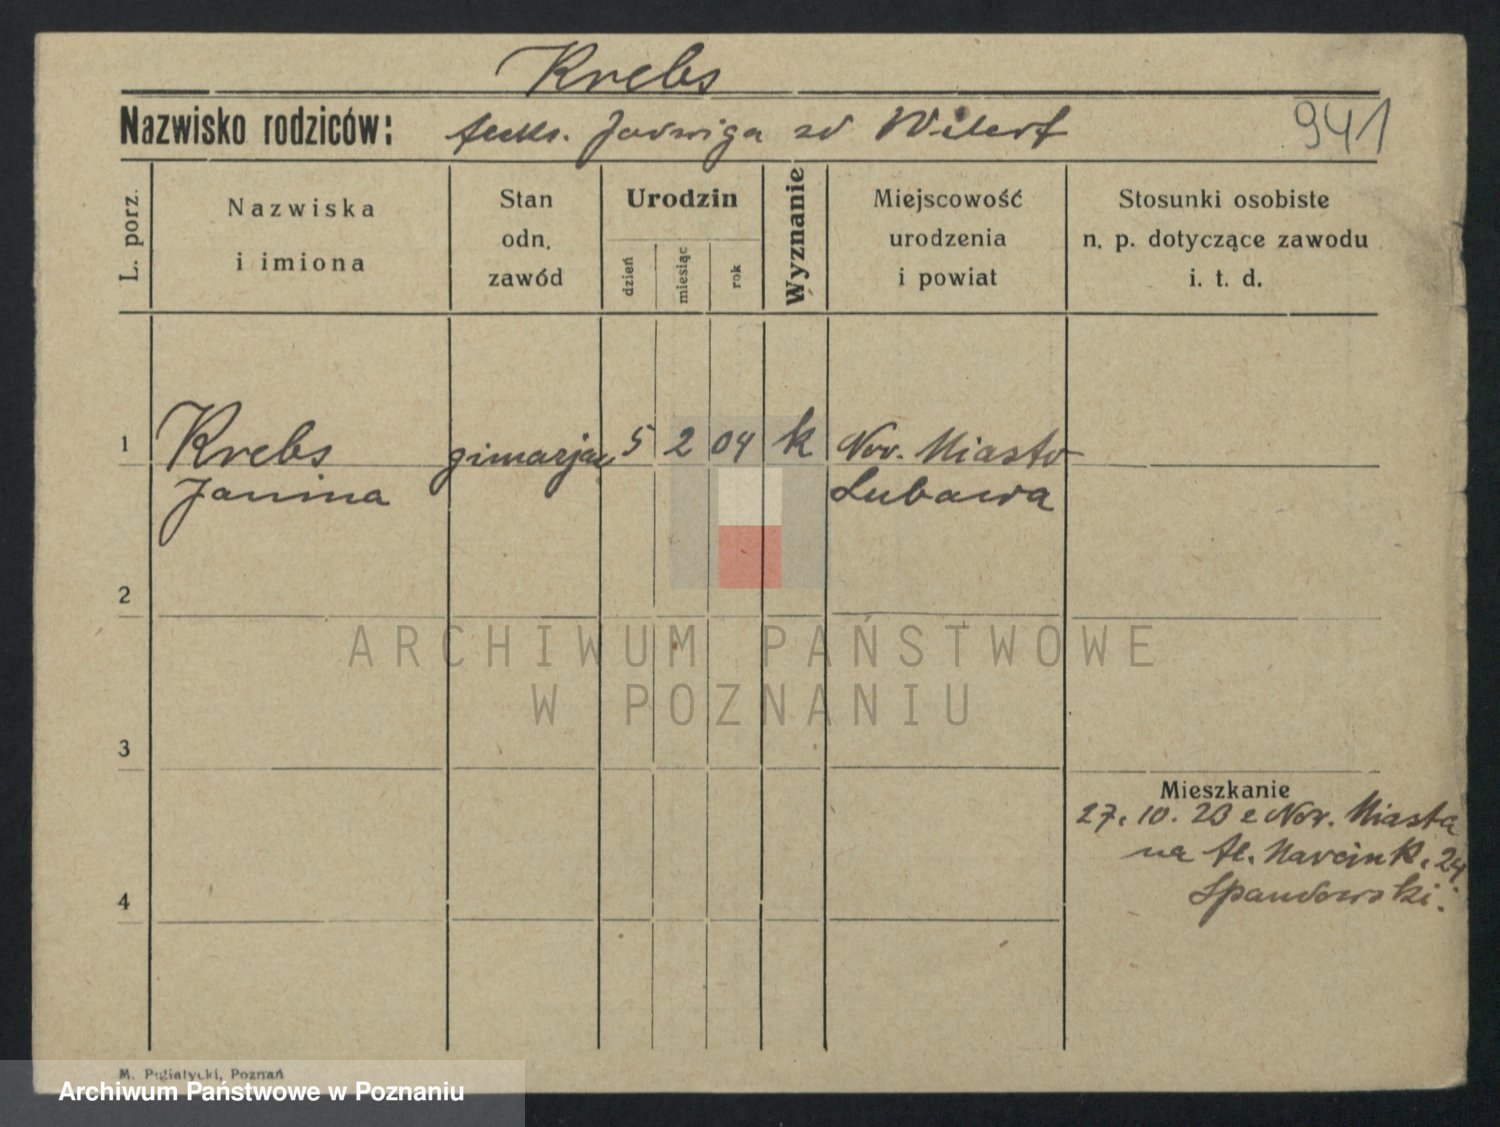 Krebs
Nazwisko rodziców: Jadwiga zd
941
L. porz.
Nazwiska
i imiona
Stan
odn.
zawód
Urodzin
dzień
miesiąc
rok
Wyznanie
Miejscowość
urodzenia
i powiat
Stosunki osobiste
n. p. dotyczące zawodu
i. t. d.
1 Krebs 5 2 04 k Now. Miasto
Janina Lubawa
2
ARCHIWUM PAŃSTWOWE
W POZNANIU
3
Mieszkanie
27. 10. 20 z Now. Miasta
na Al. Marcink. 24
Spandowski.
4
M. Pujiatycki, Poznań
Archiwum Państwowe w Poznaniu